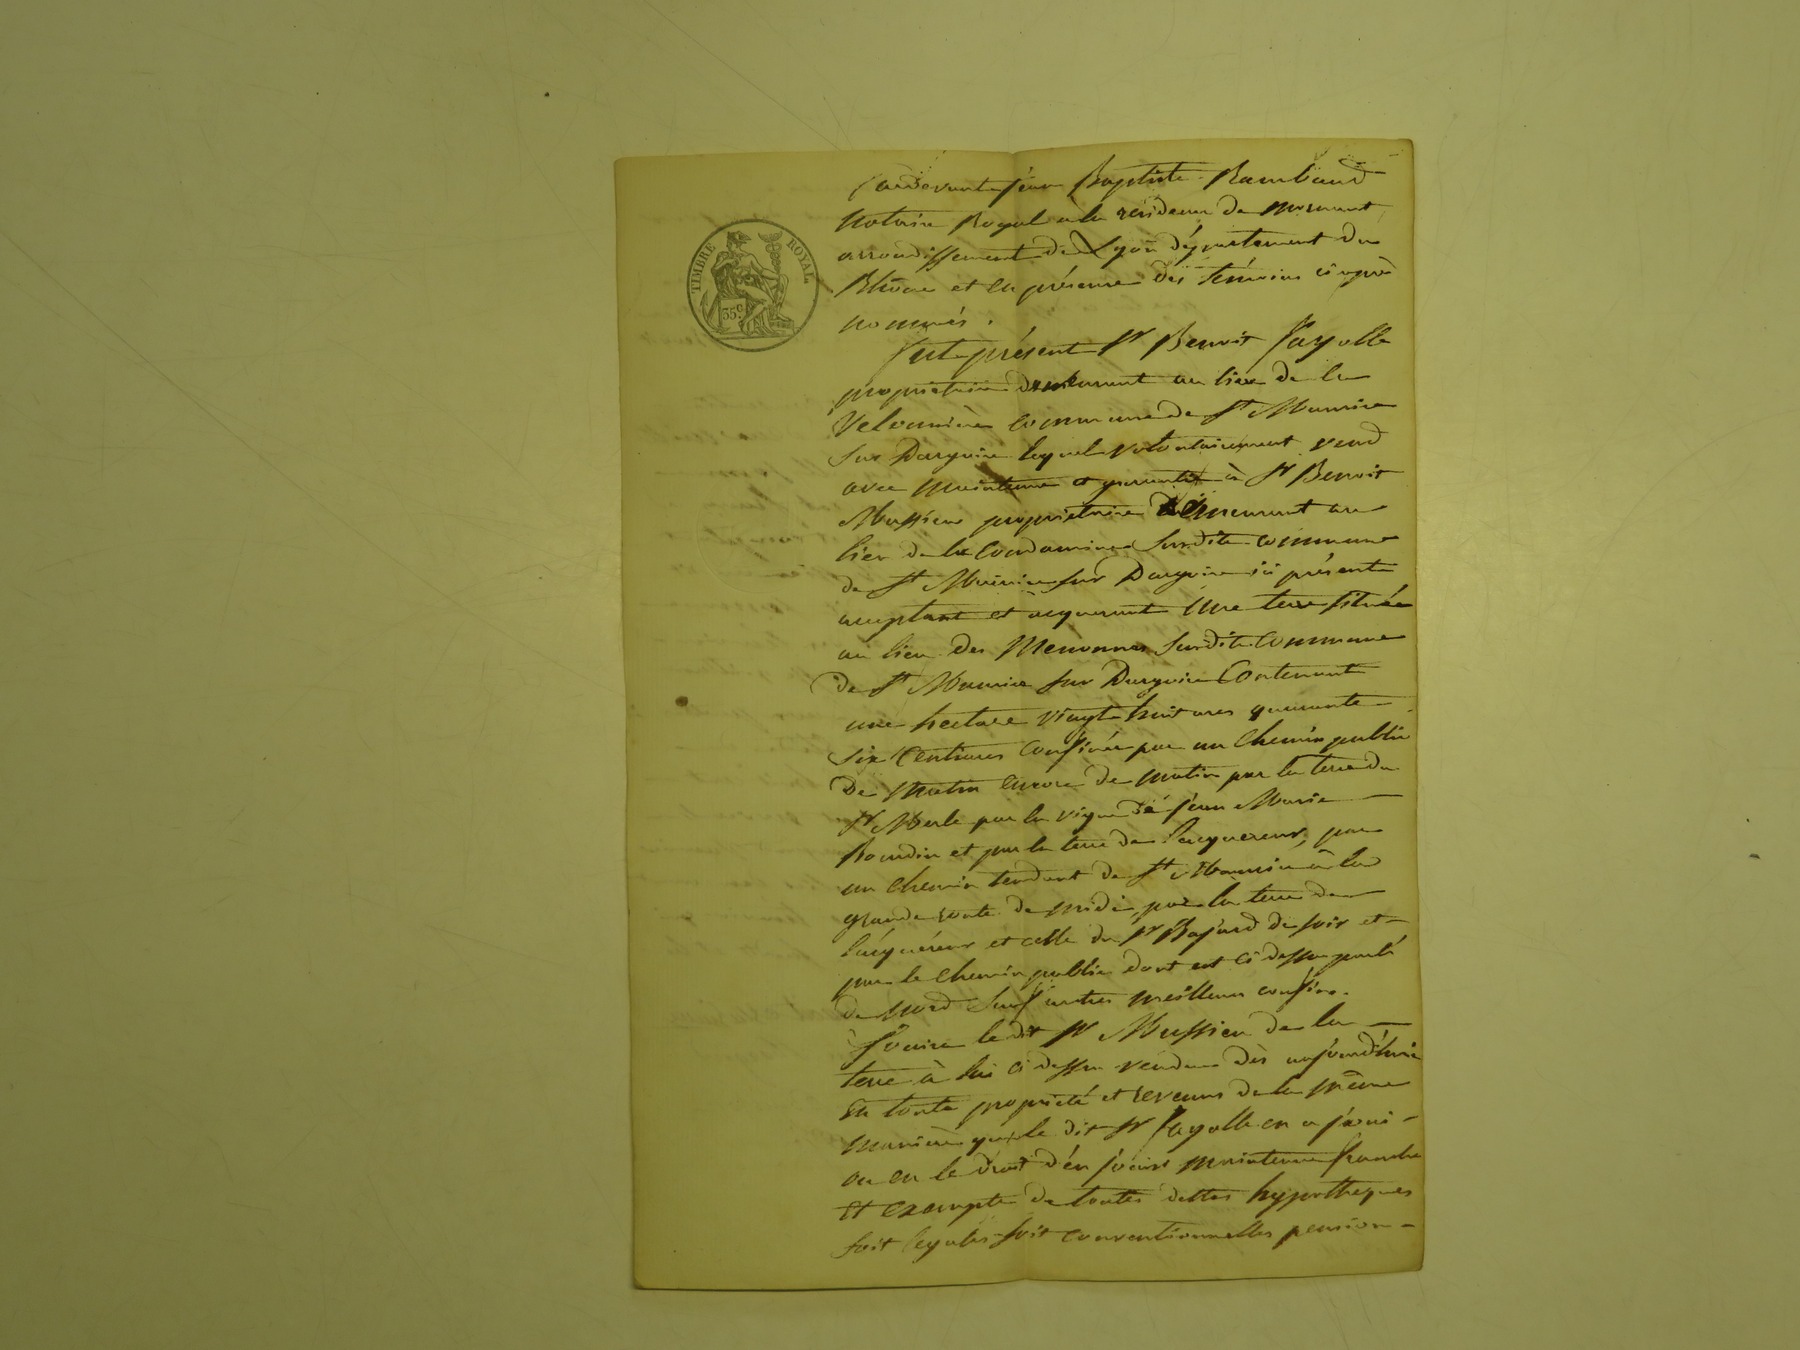 TIMBRE ROYAL
35 c.
Pardevant Jean Baptiste Rambaud
Notaire Royal à la résidence de mornant
arrondissement de Lyon département du
Rhône et en présence des témoins ci après
nommés.
fut présent Sr Benoit Fayolle
propriétaire demeurant au lieu de la
commune de St Maurice
Sur Dargoire lequel volontairement vend
avec maintenue et garantie à Sr Benoit
Mussieu propriétaire demeurant au
lieu de la Condamine Susdite commune
de St Maurice sur Dargoire ici présent
acceptant et acquerant Une terre située
au lieu des Susdite Commune
de St Maurice sur Dargoire Contenant
une hectare vingt huit ares quarante
six Centiares Confinée par un Chemin public
De matin encore de matin par la terre du
Sr Merle par la vigne de jean Marie
Boudin et par la terre de l'acquereur, par
un chemin tendant de St Maurice à la
grande route de midi, par la terre de
l'acquéreur et celle du Sr de soir et
par le chemin public dont est ci dessus parlé
de nord Sauf autres meilleurs confins.
Jouira le dit Sr Mussieu de la
terre à lui ci dessus vendue dès aujourd'hui
En toute propriété et revenus de la même
manière que le dit Sr Fayolle en a joui
ou eu le droit d'en jouir maintenue franche
Et exempte de toutes dettes hypotheques
soit legales soit conventionnelles pension-